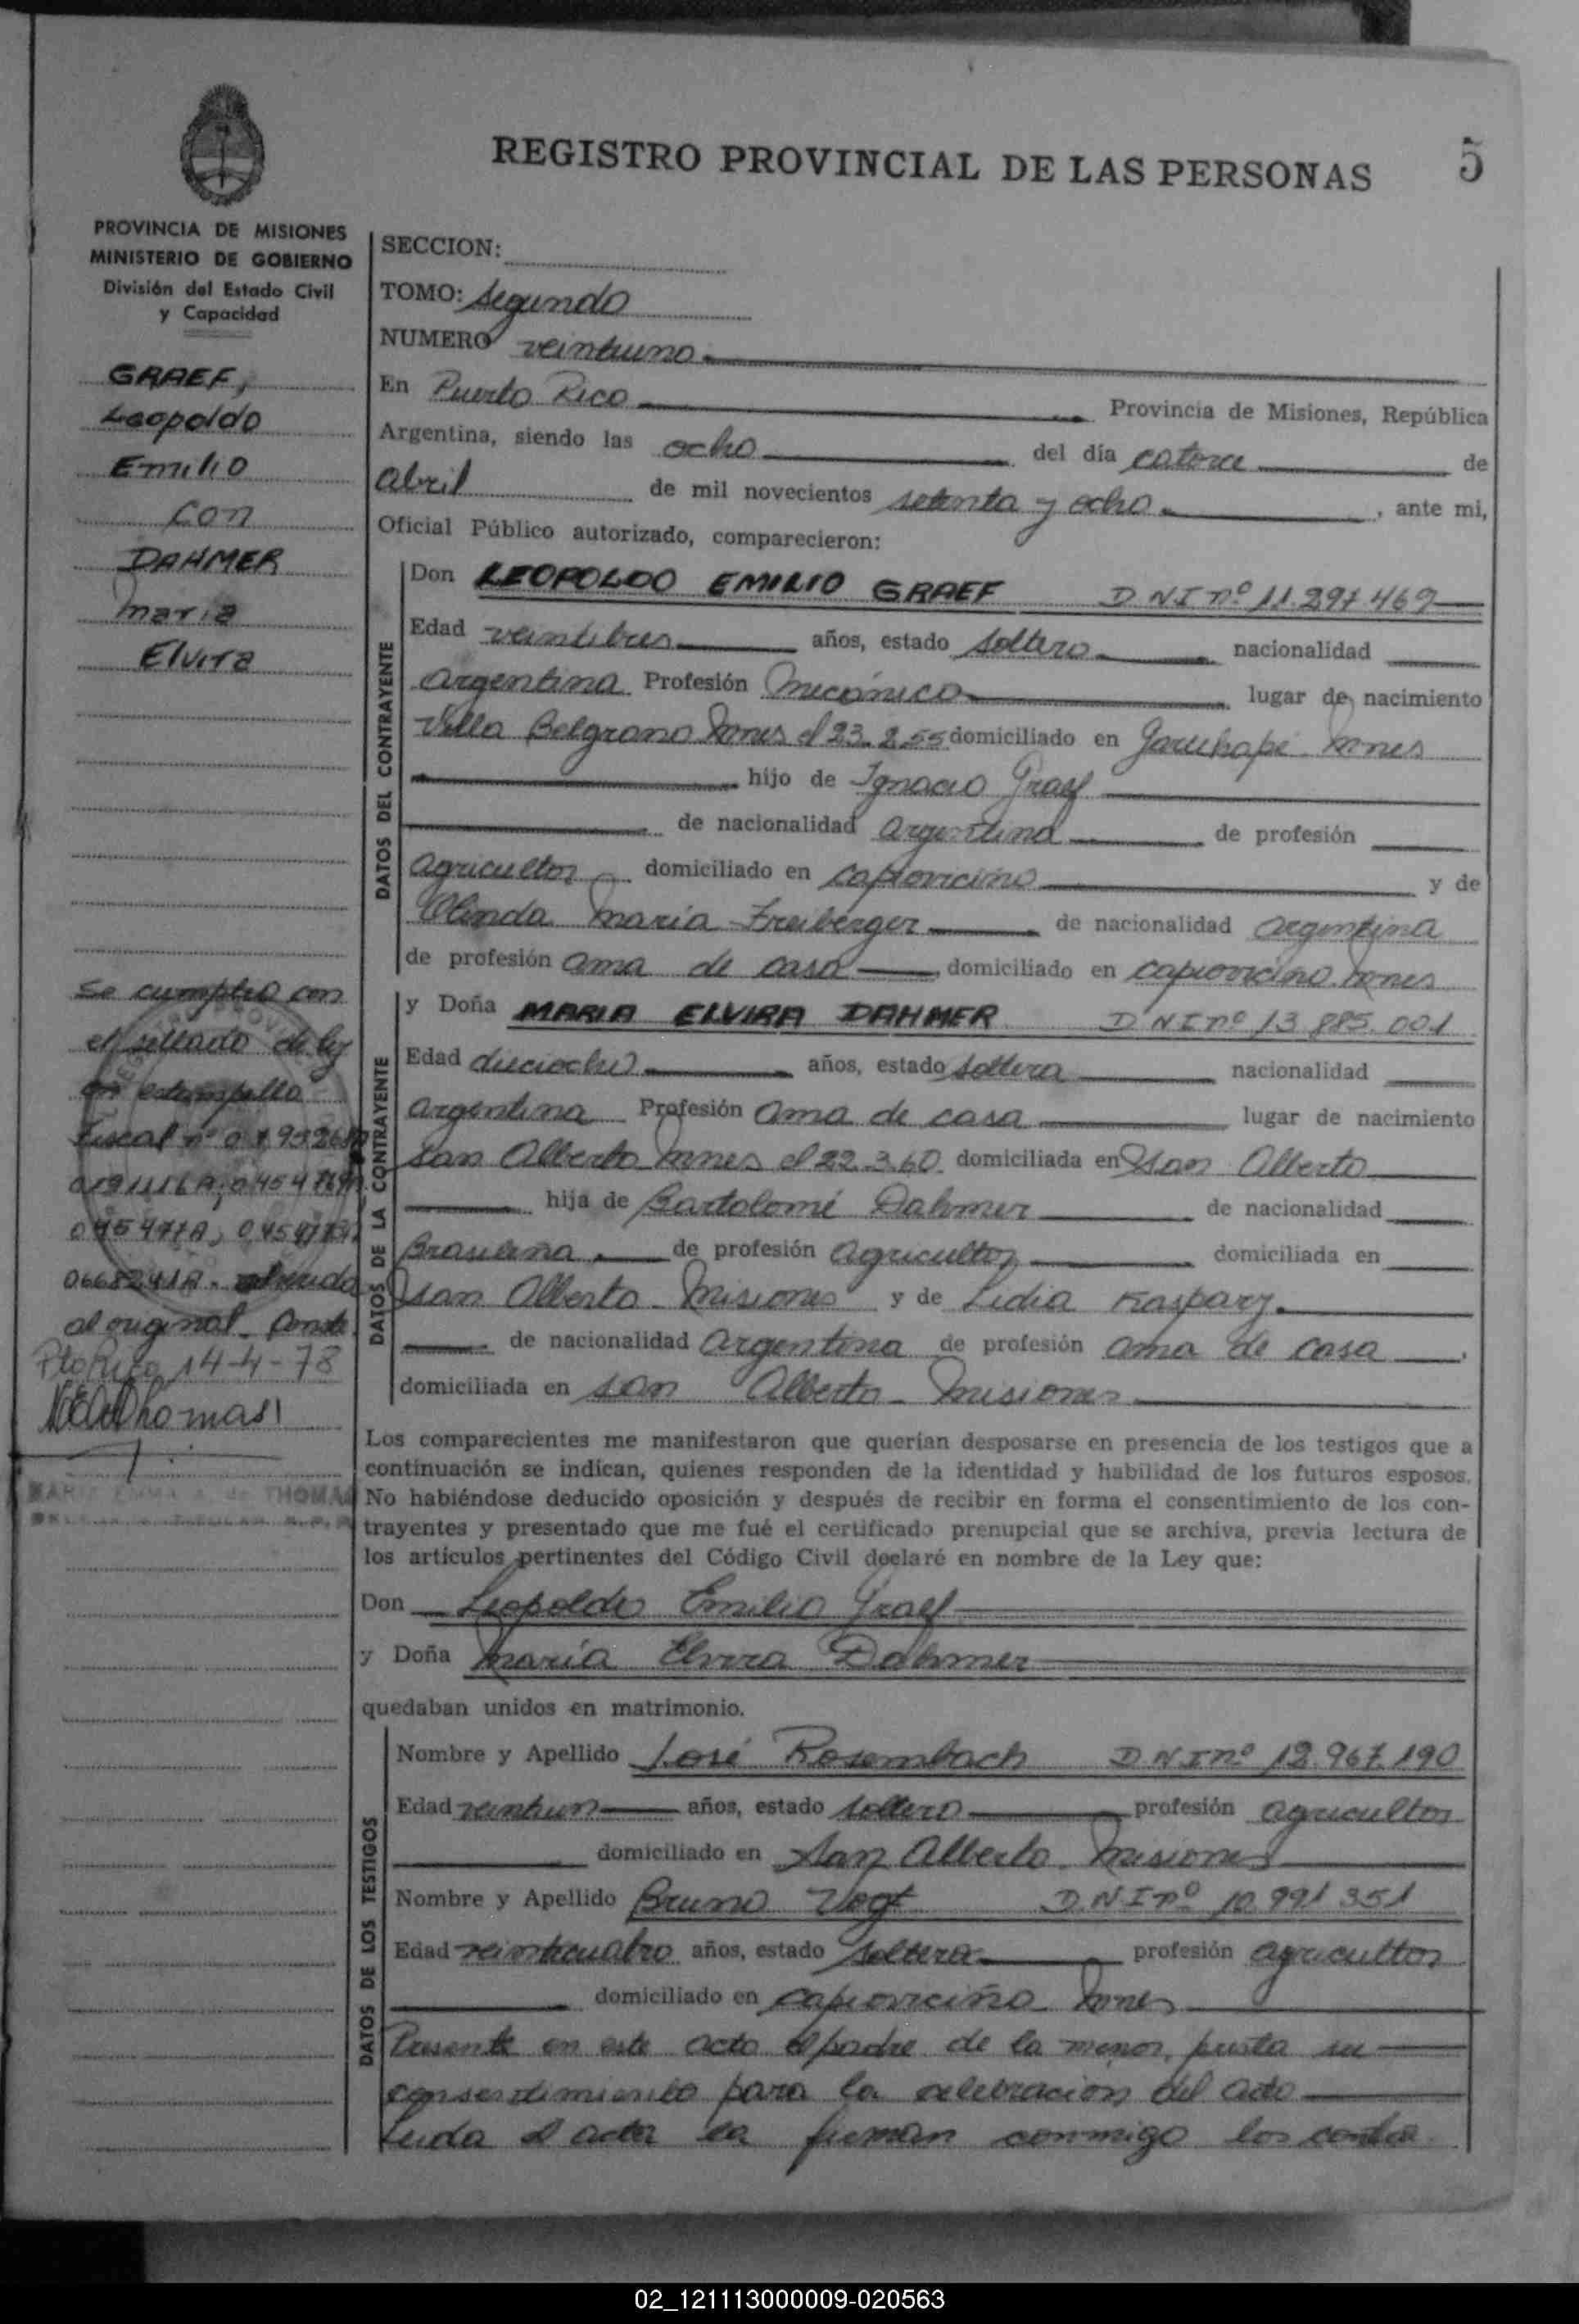 REGISTRO PROVINCIAL DE LAS PERSONAS
5
PROVINCIA DE MISIONES
MINISTERIO DE GOBIERNO
División del Estado Civil
y Capacidad
GRAEF,
Leopoldo
Emilio
con
DAHMER
maria
Elvira
Se cumplió con
el sellado de ley
en estampilla
fiscal nº
al original. Conste.
Pto Rico, 14-4-78
THOMAS
SECCION:
TOMO: Segundo
NUMERO veintiuno
En Puerto Rico Provincia de Misiones, República
Argentina, siendo las ocho del día catorce de
abril de mil novecientos setenta y ocho, ante mi,
Oficial Público autorizado, comparecieron:
DATOS DEL CONTRAYENTE
Don LEOPOLDO EMILIO GRAEF D N I nº 11.297.469
Edad veintitres años, estado soltero nacionalidad
argentina Profesión mecánico lugar de nacimiento
Villa Belgrano Mnes el 23.2.55 domiciliado en Garuhapé Mnes
hijo de Ignacio Graef
de nacionalidad argentina de profesión
agricultor domiciliado en capioviciño y de
Olinda María Freiberger de nacionalidad argentina
de profesión ama de casa domiciliado en capioviciño Mnes
DATOS DE LA CONTRAYENTE
y Doña MARIA ELVIRA DAHMER D N I nº 13.885.001
Edad dieciocho años, estado soltera nacionalidad
argentina Profesión ama de casa lugar de nacimiento
San Alberto Mnes el 22.3.60 domiciliada en San Alberto
hija de Bartolomé Dahmer de nacionalidad
Brasileña de profesión agricultor domiciliada en
San Alberto Misiones y de Lidia Kaspary
de nacionalidad argentina de profesión ama de casa
domiciliada en San Alberto Misiones
Los comparecientes me manifestaron que querían desposarse en presencia de los testigos que a
continuación se indican, quienes responden de la identidad y habilidad de los futuros esposos.
No habiéndose deducido oposición y después de recibir en forma el consentimiento de los con-
trayentes y presentado que me fué el certificado prenupcial que se archiva, previa lectura de
los artículos pertinentes del Código Civil declaré en nombre de la Ley que:
Don Leopoldo Emilio Graef
y Doña María Elvira Dahmer
quedaban unidos en matrimonio.
DATOS DE LOS TESTIGOS
Nombre y Apellido José Rosembach D.N.I nº 12.967.190
Edad veintiun años, estado soltero profesión agricultor
domiciliado en San Alberto Misiones
Nombre y Apellido Bruno Vogt D.N.I nº 10.991.351
Edad veinticuatro años, estado soltero profesión agricultor
domiciliado en capioviciño Mnes
Presente en este acto el padre de la menor, presta su
consentimiento para la celebración del acto
Leida el acta la firman conmigo los contra
02_121113000009-020563